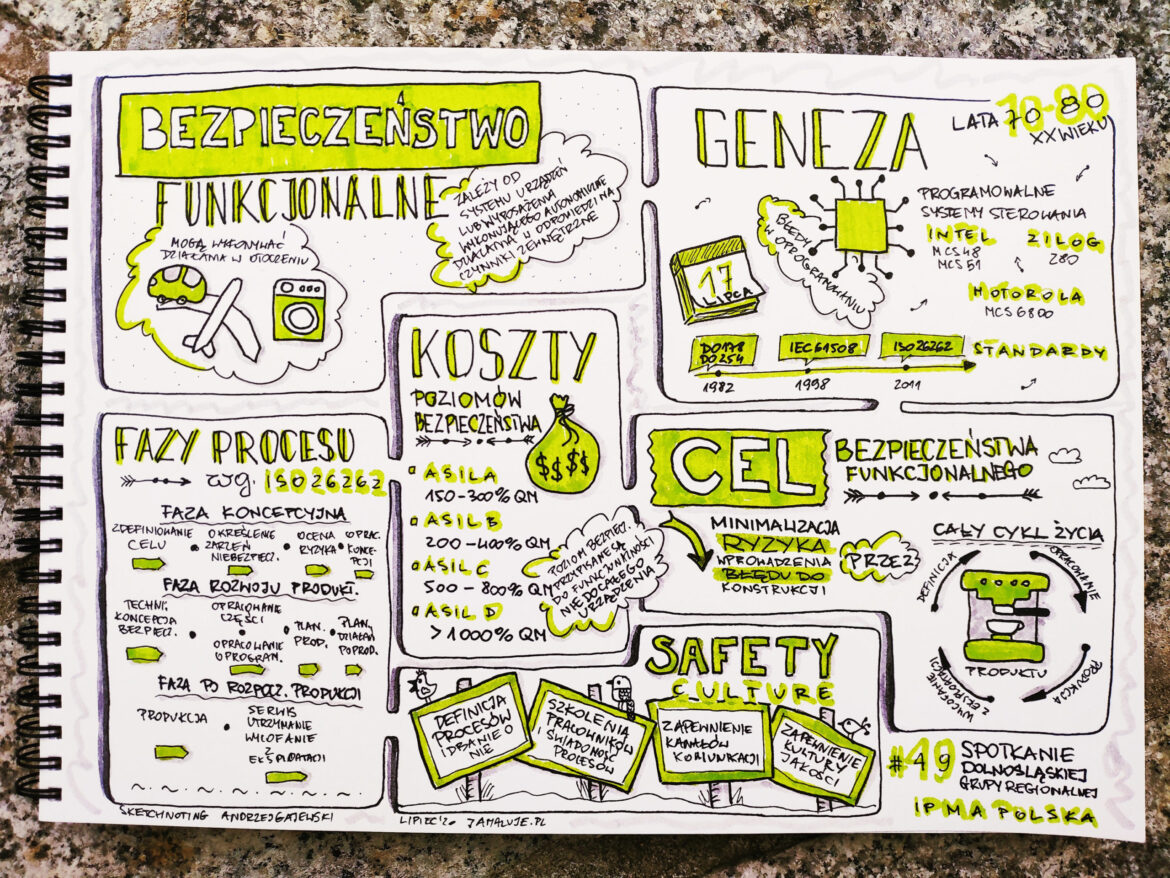 BEZPIECZEŃSTWO
FUNKCJONALNE
ZALEŻY OD
SYSTEMU URZĄDZEŃ
LUB WYPOSAŻENIA
WYKONUJĄCEGO AUTONOMICZNE
DZIAŁANIA W ODPOWIEDZI NA
CZYNNIKI ZEWNĘTRZNE
MOGĄ WYKONYWAĆ
DZIAŁANIA W OTOCZENIU
GENEZA
LATA 70-80
XX WIEKU
PROGRAMOWALNE
SYSTEMY STEROWANIA
INTEL
MCS48
MCS51
ZILOG
Z80
MOTOROLA
MCS6800
BŁĘDY
W OPROGRAMOWANIU
17
LIPCA
DO178
DO254
IEC61508
ISO26262
STANDARDY
1982
1998
2011
KOSZTY
POZIOMÓW
BEZPIECZEŃSTWA
$$$$
ASIL A
150-300% QM
ASIL B
200-400% QM
ASIL C
500-800% QM
ASIL D
>1000% QM
POZIOM BEZPIECZ.
PRZYPISANE SĄ
DO FUNKCJONALNOŚCI
NIE DO CAŁEGO
URZĄDZENIA
FAZY PROCESU
wg. ISO26262
FAZA KONCEPCYJNA
ZDEFINIOWANIE
CELU
OKREŚLENIE
ZAPLEŃ
NIEBEZPIECZ.
OCENA
RYZYKA
OPRAC.
KONCE-
PCJI
FAZA ROZWOJU PRODUKT.
TECHNI.
KONCEPCJA
BEZPIECZ.
OPRACOWANIE
CZĘŚCI
OPRACOWANIE
OPROGRAM.
PLAN.
PROD.
PLAN.
DZIAŁAŃ
POPROD.
FAZA PO ROZPOCZ. PRODUKCJI
PRODUKCJA
SERWIS
UTRZYMANIE
WYCOFANIE
Z
EKSPLOATACJI
CEL
BEZPIECZEŃSTWA
FUNKCJONALNEGO
MINIMALIZACJA
RYZYKA
WPROWADZENIA
BŁĘDU DO
KONSTRUKCJI
PRZEZ
CAŁY CYKL ŻYCIA
DEFINICJA
OPRACOWANIE
PRODUKCJA
WYCOFANIE
PRODUKTU
SAFETY
CULTURE
DEFINICJA
PROCESÓW
I DBANIE O
NIE
SZKOLENIA
PRACOWNIKÓW
I ŚWIADOMOŚĆ
PROCESÓW
ZAPEWNIENIE
KANAŁÓW
KOMUNIKACJI
ZAPEWNIENIE
KULTURY
JAKOŚCI
#49 SPOTKANIE
DOLNOŚLĄSKIEJ
GRUPY REGIONALNEJ
IPMA POLSKA
SKETCHNOTING ANDRZEJ GAJEWSKI
LIPIEC'20 JAMALUJE.PL